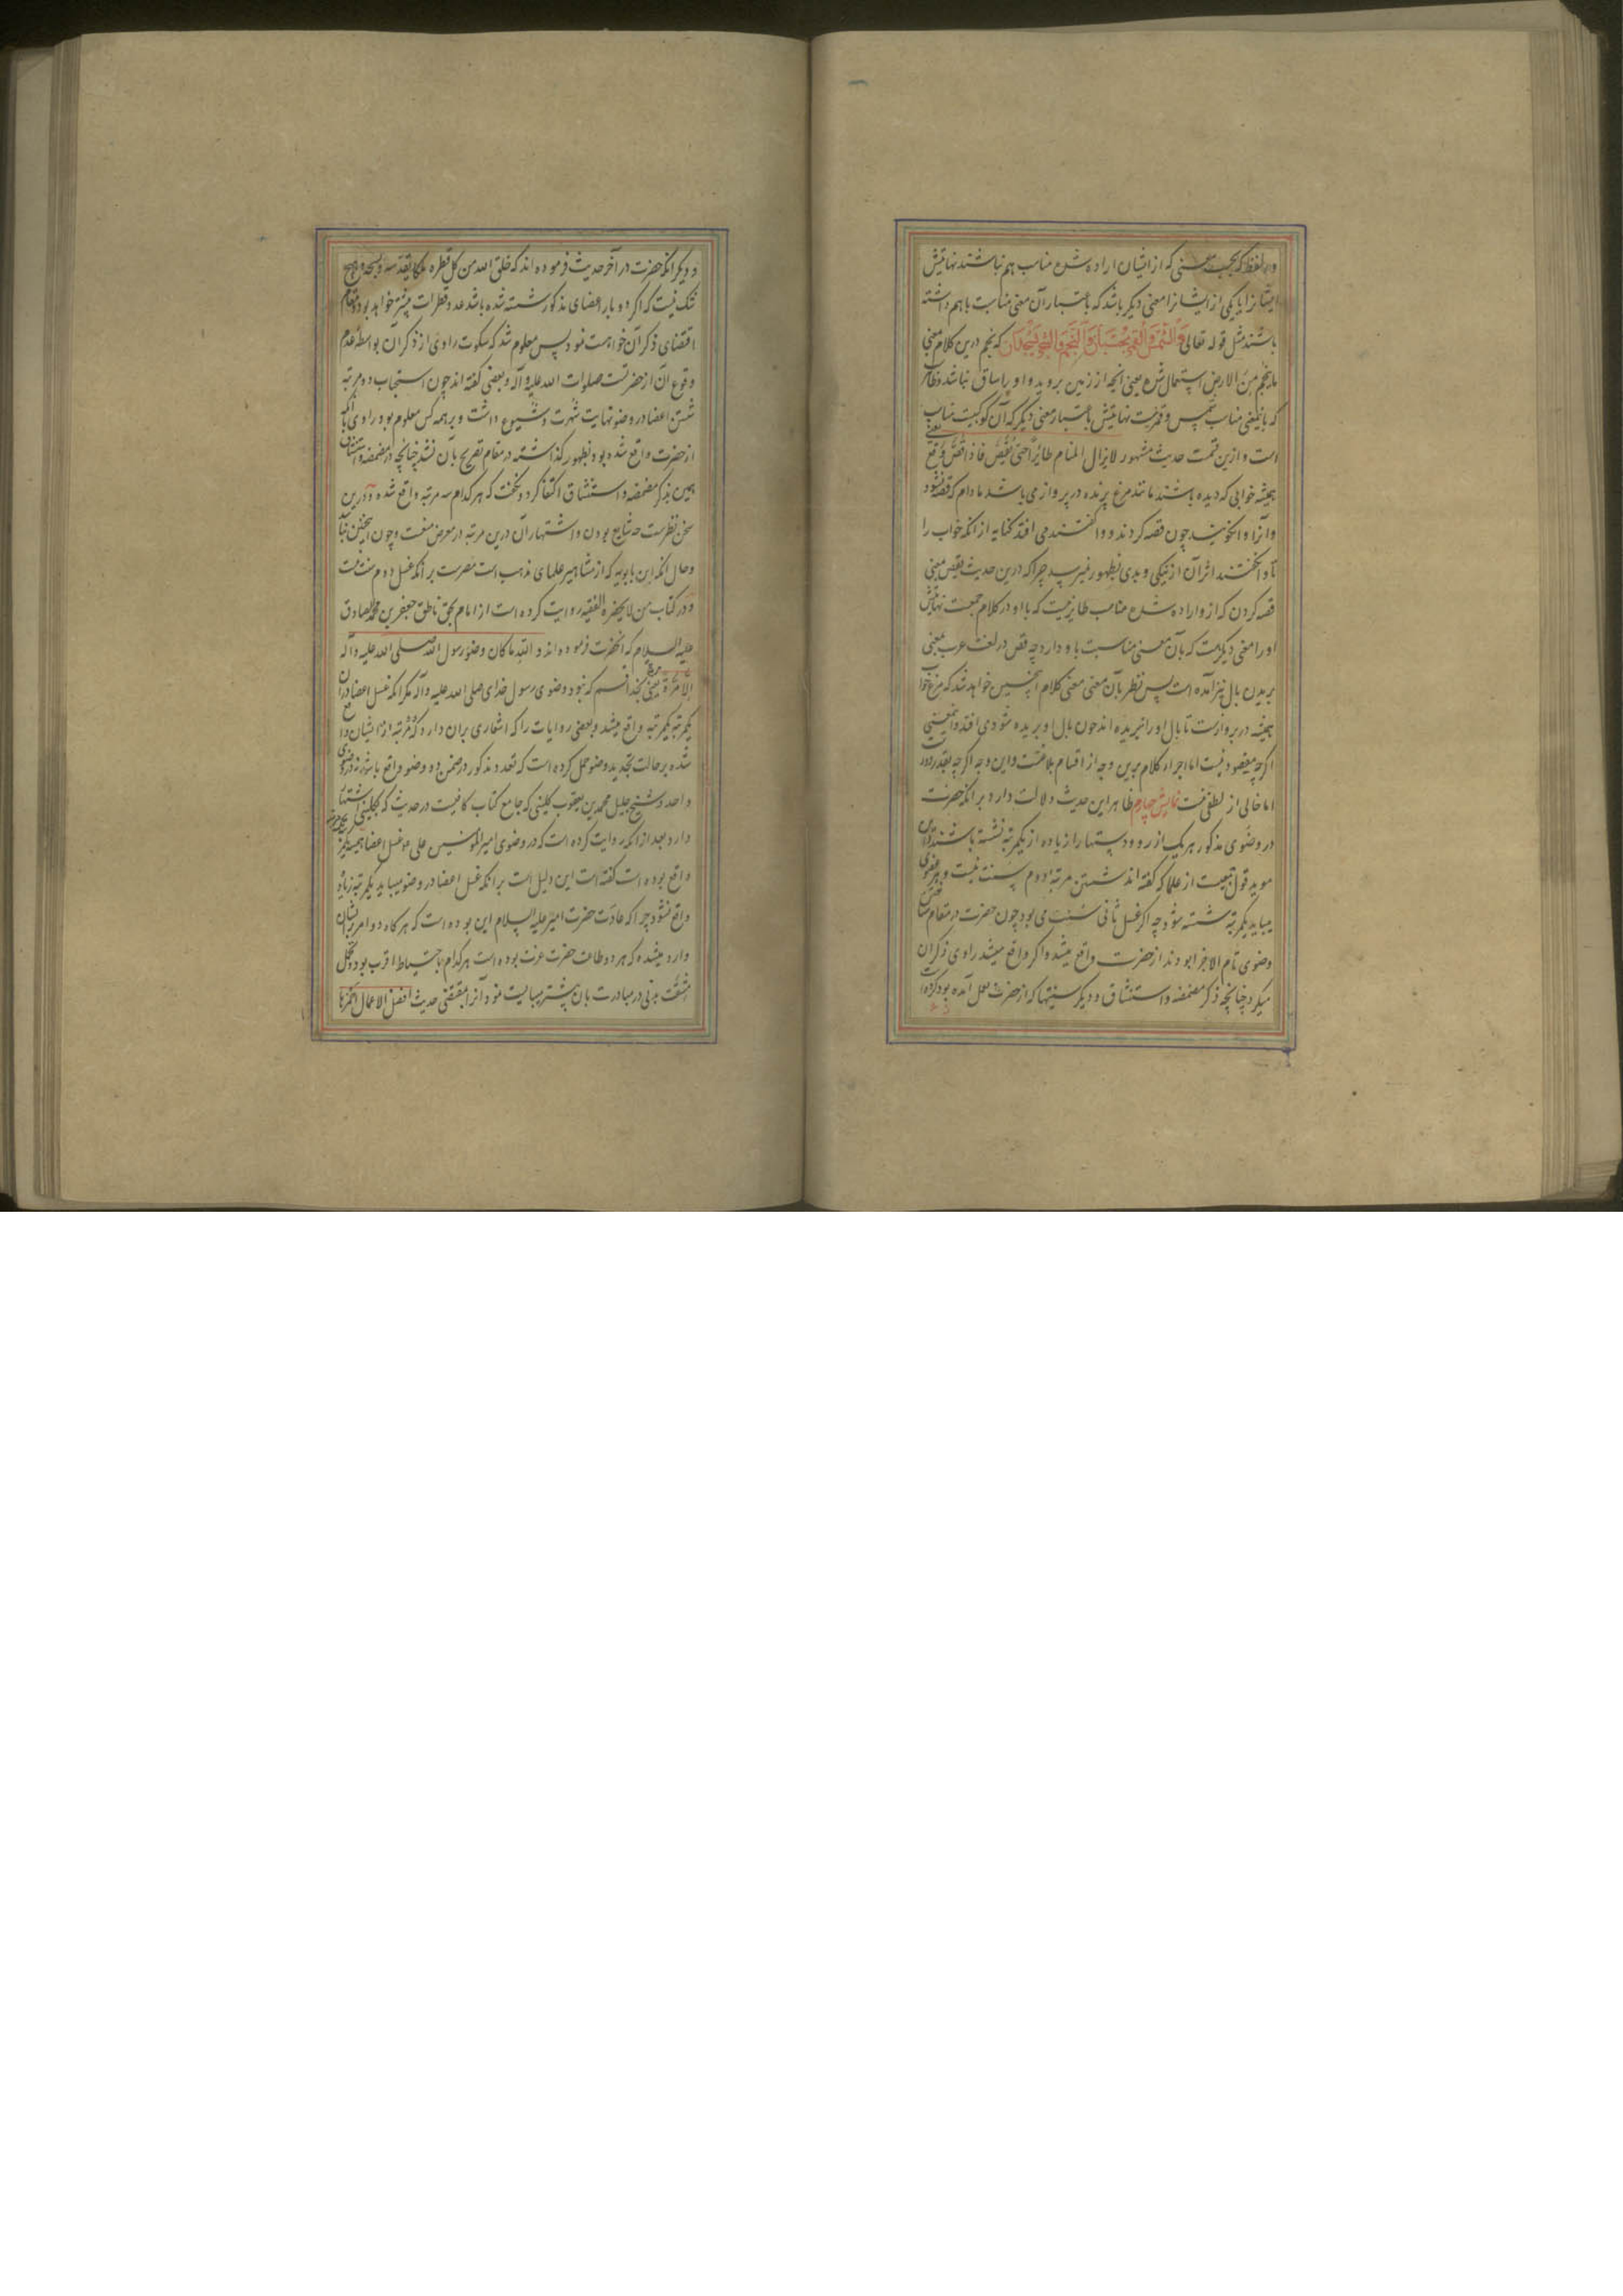 و دو لفظ که بحسب معنی که از ایشان اراده شده مناسب هم نباشند نهایتش
ایشانرا یا یکی از ایشانرا معنی دیگر باشد که باعتبار آن معنی مناسبت باهم داشته
باشند مثل قوله تعالی وَالشَّمْسُ وَالْقَمَرُ بِحُسْبَانٍ وَالنَّجْمُ وَالشَّجَرُ يَسْجُدَانِ که نجم درین کلام بمعنی
ما ینجم من الارض استعمال شده یعنی انچه از زمین بروید و او را ساق نباشد و ظاهر
که باینمعنی مناسب شمس و قمر نیست نهایتش باعتبار معنی دیگر که آن کوکبست مناسب
است و ازین قسمست حدیث مشهور لایزال المنام طائرًا حتی یُقَصّ فاذا قُصَّ وقع یعنی
همیشه خوابی که دیده باشند مانند مرغ پرنده در پرواز می باشد مادام که قصه نشود
و آنرا وانکویند چون قصه کردند و واکفتند می افتد کنایه از انکه خواب را
تا وانکفتند اثر آن از نیکی و بدی بظهور نمیرسد چرا که درین حدیث یقص بمعنی
قصه کردن که ازو اراده شده مناسب طایر نیست که با او در کلام جمعست نهایتش
او را معنی دیگرست که بآن معنی مناسبت با او دارد چه قص در لغت عرب بمعنی
بریدن بال نیز آمده است پس نظر بآن معنی معنی کلام اینچنین خواهد شد که مرغ خواب
همیشه در پروازست تا بال او را نبریده اند چون بال او بریده شود می افتد و اینمعنی
اکرچه مقصود نیست اما اجراء کلام برین وجه از اقسام بلاغتست و این وجه اکرچه بقدر دور است
اما خالی از لطفی نیست نمایش چهارم ظاهر این حدیث دلالت دارد بر انکه حضرت
در وضوی مذکور هر یک از رو و دستها را زیاده از یکمرتبه نشسته باشند و این
موید قول جمعیست از علما که کفته اند شستن مرتبه دوم سنت نیست و هر عضوی
میباید یکمرتبه شسته شود چه اکر غسل ثانی سنت می بود چون حضرت در مقام
وضوی تام الاجزا بودند از حضرت واقع میشد و اکر واقع میشد راوی ذکر آن
میکرد چنانچه ذکر مضمضه و استنشاق و دیگر سنتها که از حضرت بعمل آمده بود کرده
و دیگر انکه حضرت در آخر حدیث فرموده اند که خلق الله من کل قطره ملکا یقدسه و یسبحه و هیچ
شک نیست که اکر دو بار اعضای مذکور شسته شده باشد عدد قطرات بیشتر خواهد بود و مقام
اقتضای ذکر آن خواهست نمود پس معلوم شد که سکوت راوی از ذکر آن بواسطه عدم
وقوع آن از حضرتست صلوات الله علیه و آله و بعضی کفته اند چون استحباب دو مرتبه
شستن اعضا در وضو نهایت شهرت و شیوع داشت و بر همه کس معلوم بود راوی با آنکه
از حضرت واقع شده بود بظهور کذاشته در مقام تصریح بآن نشد چنانچه در مضمضه و استنشاق
همین بذکر مضمضه و استنشاق اکتفا کرد و نکفت که هر کدام سه مرتبه واقع شده و درین
سخن نظرست چه شایع بودن و اشتهار آن درین مرتبه در معرض منعست و چون اینچنین باشد
و حال انکه ابن بابویه که از مشاهیر علمای مذهب است مصرست بر انکه غسل دوم سنت نیست
و در کتاب من لا یحضره الفقیه روایت کرده است از امام بحق ناطق جعفر بن محمد الصادق
علیه السلام که آنحضرت فرموده اند والله ما کان وضوء رسول الله صلی الله علیه و آله
الا مرّة مرّة یعنی بخدا قسم که نبود وضوی رسول خدای صلی الله علیه و آله مکر انکه غسل اعضا در آن
یکمرتبه یکمرتبه واقع میشد و بعضی روایات را که اشعاری بران دارد که دو مرتبه از ایشان واقع
شده بر حالت تجدید وضو حمل کرده است که تعدد مذکور در ضمن دو وضو واقع باشد نه در وضوی
واحد و شیخ جلیل محمد بن یعقوب کلینی که جامع کتاب کافیست در حدیث که بکلینی اشتهار
دارد بعد از انکه روایت کرده است که در وضوی امیر المؤمنین علی ع غسل اعضا همیشه یکمرتبه
واقع بوده است کفته است این دلیل است بر انکه غسل اعضا در وضو میباید یکمرتبه زیاده
واقع نشود چرا که عادت حضرت امیر علیه السلام این بوده است که هرکاه دو امر بایشان
وارد میشده که هر دو طاعت حضرت عزت بوده است هرکدام باحتیاط اقرب بود و تحمل
مشقت بدنی در مبادرت بان بیشتر میبایست نمود آنرا بمقتضی حدیث افضل الاعمال احمزها